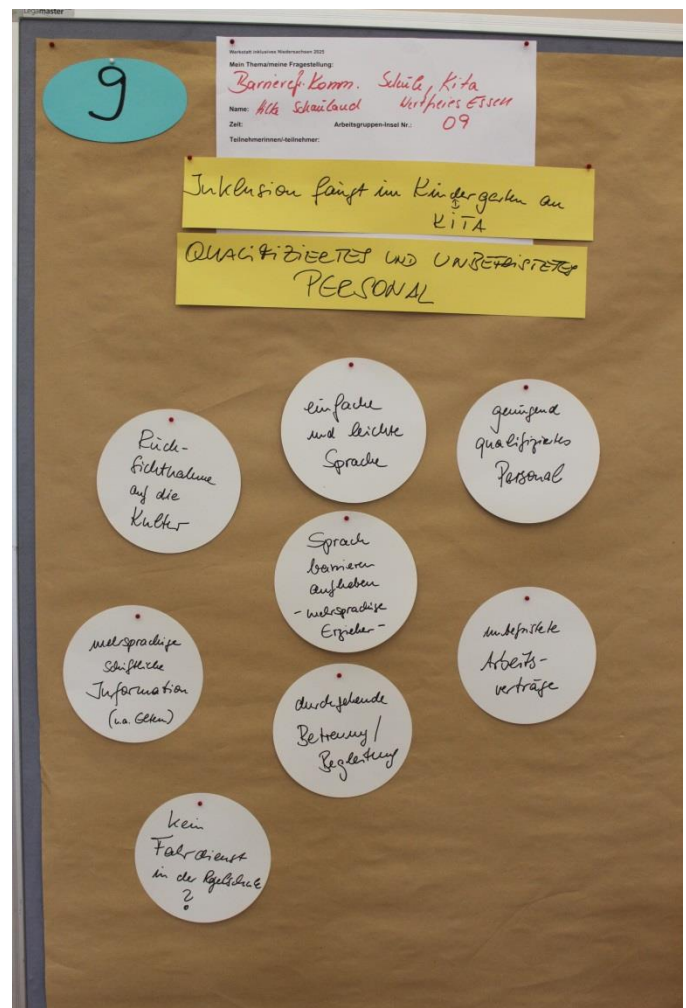 Legamaster
9
Werkstatt inklusives Niedersachsen 2025
Mein Thema/meine Fragestellung:
Barrieref. Komm. Schule, Kita
Name:
Essen
Zeit: Arbeitsgruppen-Insel Nr.: 09
Teilnehmerinnen/-teilnehmer:
Inklusion fängt im Kindergarten an
KITA
QUALIFIZIERTES UND UNBEFRISTETES
PERSONAL
einfache
und leichte
Sprache
genügend
qualifiziertes
Personal
Rück-
sichtnahme
auf die
Kultur
Sprach
barrieren
aufheben
- mehrsprachige
Erzieher -
mehrsprachige
schriftliche
Information
(u.a. Eltern)
unbefristete
Arbeits-
verträge
durchgehende
Betreuung/
Begleitung
kein
Fahrdienst
in der Regelschule
?